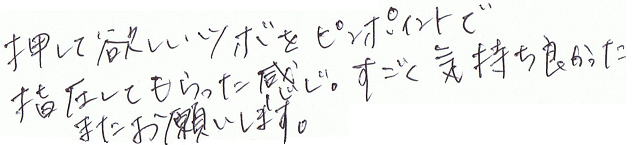 押して欲しいツボをピンポイントで
指圧してもらった感じ。すごく気持ち良かった
またお願いします。